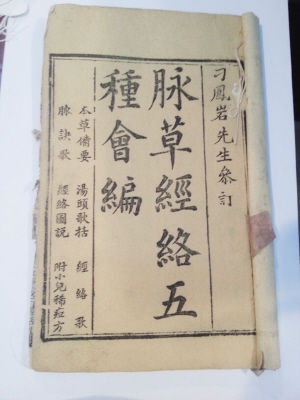 刁鳳岩先生參訂
脉草經絡五
種會編
本草備要 湯頭歌括 經絡歌
脉訣歌 經絡圖説 附小兒稀痘方